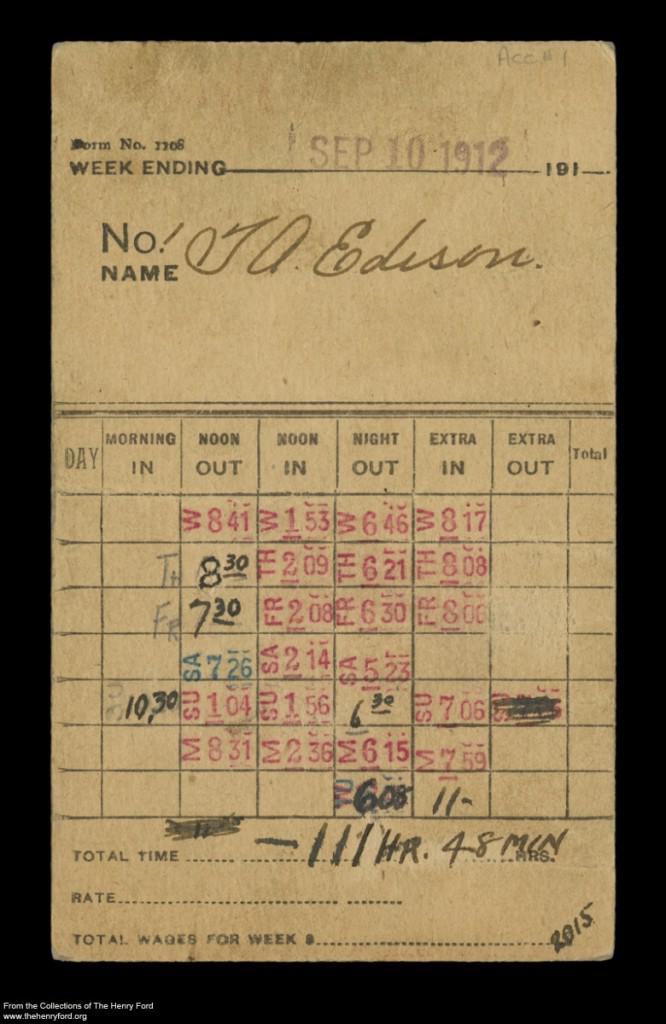 Acc # 1
Form No. 1108
WEEK ENDING SEP 10 1912 191
No. 1 T A. Edison.
NAME
DAY MORNING IN NOON OUT NOON IN NIGHT OUT EXTRA IN EXTRA OUT Total
W 8 41 W 1 53 W 6 46 W 8 17
TH 8 30 TH 2 09 TH 6 21 TH 8 08
FR 7 30 FR 2 08 FR 6 30 FR 8 06
SA 7 26 SA 2 14 SA 5 23
SU 10,30 SU 1 04 SU 1 56 6 30 SU 7 06
M 8 31 M 2 36 M 6 15 M 7 59
TU 6 08 11-
TOTAL TIME - 111 HR. 48 MIN HRS.
RATE
TOTAL WAGES FOR WEEK $
2015
From the Collections of The Henry Ford
www.thehenryford.org